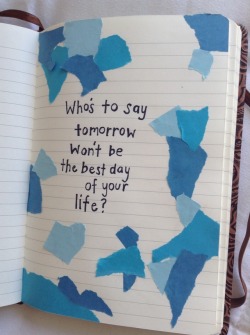 Who's to say
tomorrow
Won't be
the best day
of your
life?